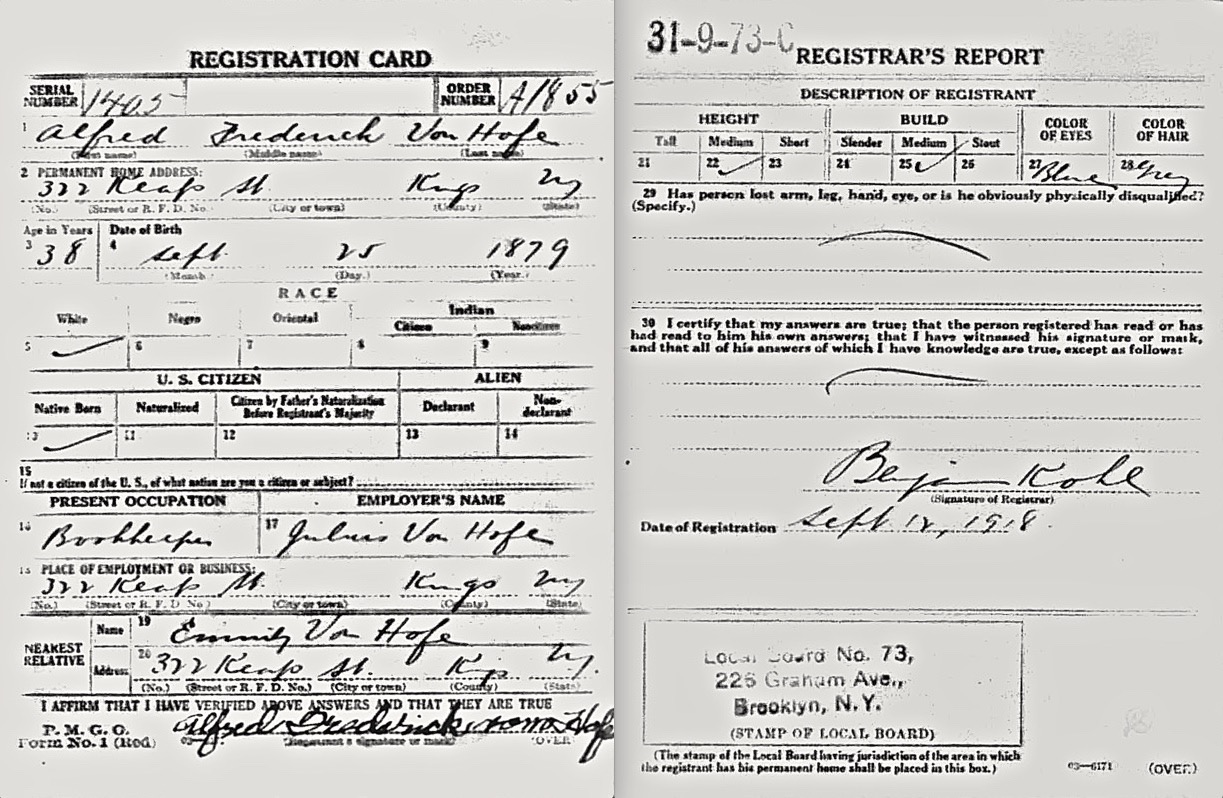 REGISTRATION CARD
SERIAL NUMBER 1405 ORDER NUMBER A1855
1 Alfred Frederick Von Hofe
(First name) (Middle name) (Last name)
2 PERMANENT HOME ADDRESS:
322 Keap St. Kings NY
(No.) (Street or R. F. D. No.) (City or town) (County) (State)
Age in Years Date of Birth
3 38 4 Sept. 25 1879
(Month.) (Day.) (Year.)
RACE
White Negro Oriental Indian
Citizen Noncitizen
5 6 7 8 9
U. S. CITIZEN ALIEN
Native Born Naturalized Citizen by Father's Naturalization Before Registrant's Majority Declarant Non-declarant
10 11 12 13 14
15
If not a citizen of the U. S., of what nation are you a citizen or subject?
PRESENT OCCUPATION EMPLOYER'S NAME
16 Bookkeeper 17 Julius Von Hofe
18 PLACE OF EMPLOYMENT OR BUSINESS:
322 Keap St. Kings NY
(No.) (Street or R. F. D. No.) (City or town) (County) (State)
NEAREST RELATIVE
Name 19 Emmily Von Hofe
Address 20 322 Keap St. Kings NY.
(No.) (Street or R. F. D. No.) (City or town) (County) (State)
I AFFIRM THAT I HAVE VERIFIED ABOVE ANSWERS AND THAT THEY ARE TRUE
P. M. G. O.
Form No. 1 (Red) Alfred Frederick Hofe
(Registrant's signature or mark) (OVER)
31-9-73-C REGISTRAR'S REPORT
DESCRIPTION OF REGISTRANT
HEIGHT BUILD COLOR OF EYES COLOR OF HAIR
Tall Medium Short Slender Medium Stout
21 22 23 24 25 26 27 Blue 28 Grey
29 Has person lost arm, leg, hand, eye, or is he obviously physically disqualified?
(Specify.)
30 I certify that my answers are true; that the person registered has read or has
had read to him his own answers; that I have witnessed his signature or mark,
and that all of his answers of which I have knowledge are true, except as follows:
Benjamin Kohl
(Signature of Registrar)
Date of Registration Sept 12, 1918.
Local Board No. 73,
226 Graham Ave.,
Brooklyn, N.Y.
(STAMP OF LOCAL BOARD)
(The stamp of the Local Board having jurisdiction of the area in which
the registrant has his permanent home shall be placed in this box.)
03—6171 (OVER)